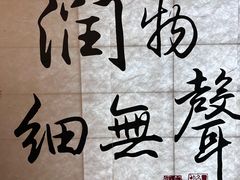 潤物
細無聲